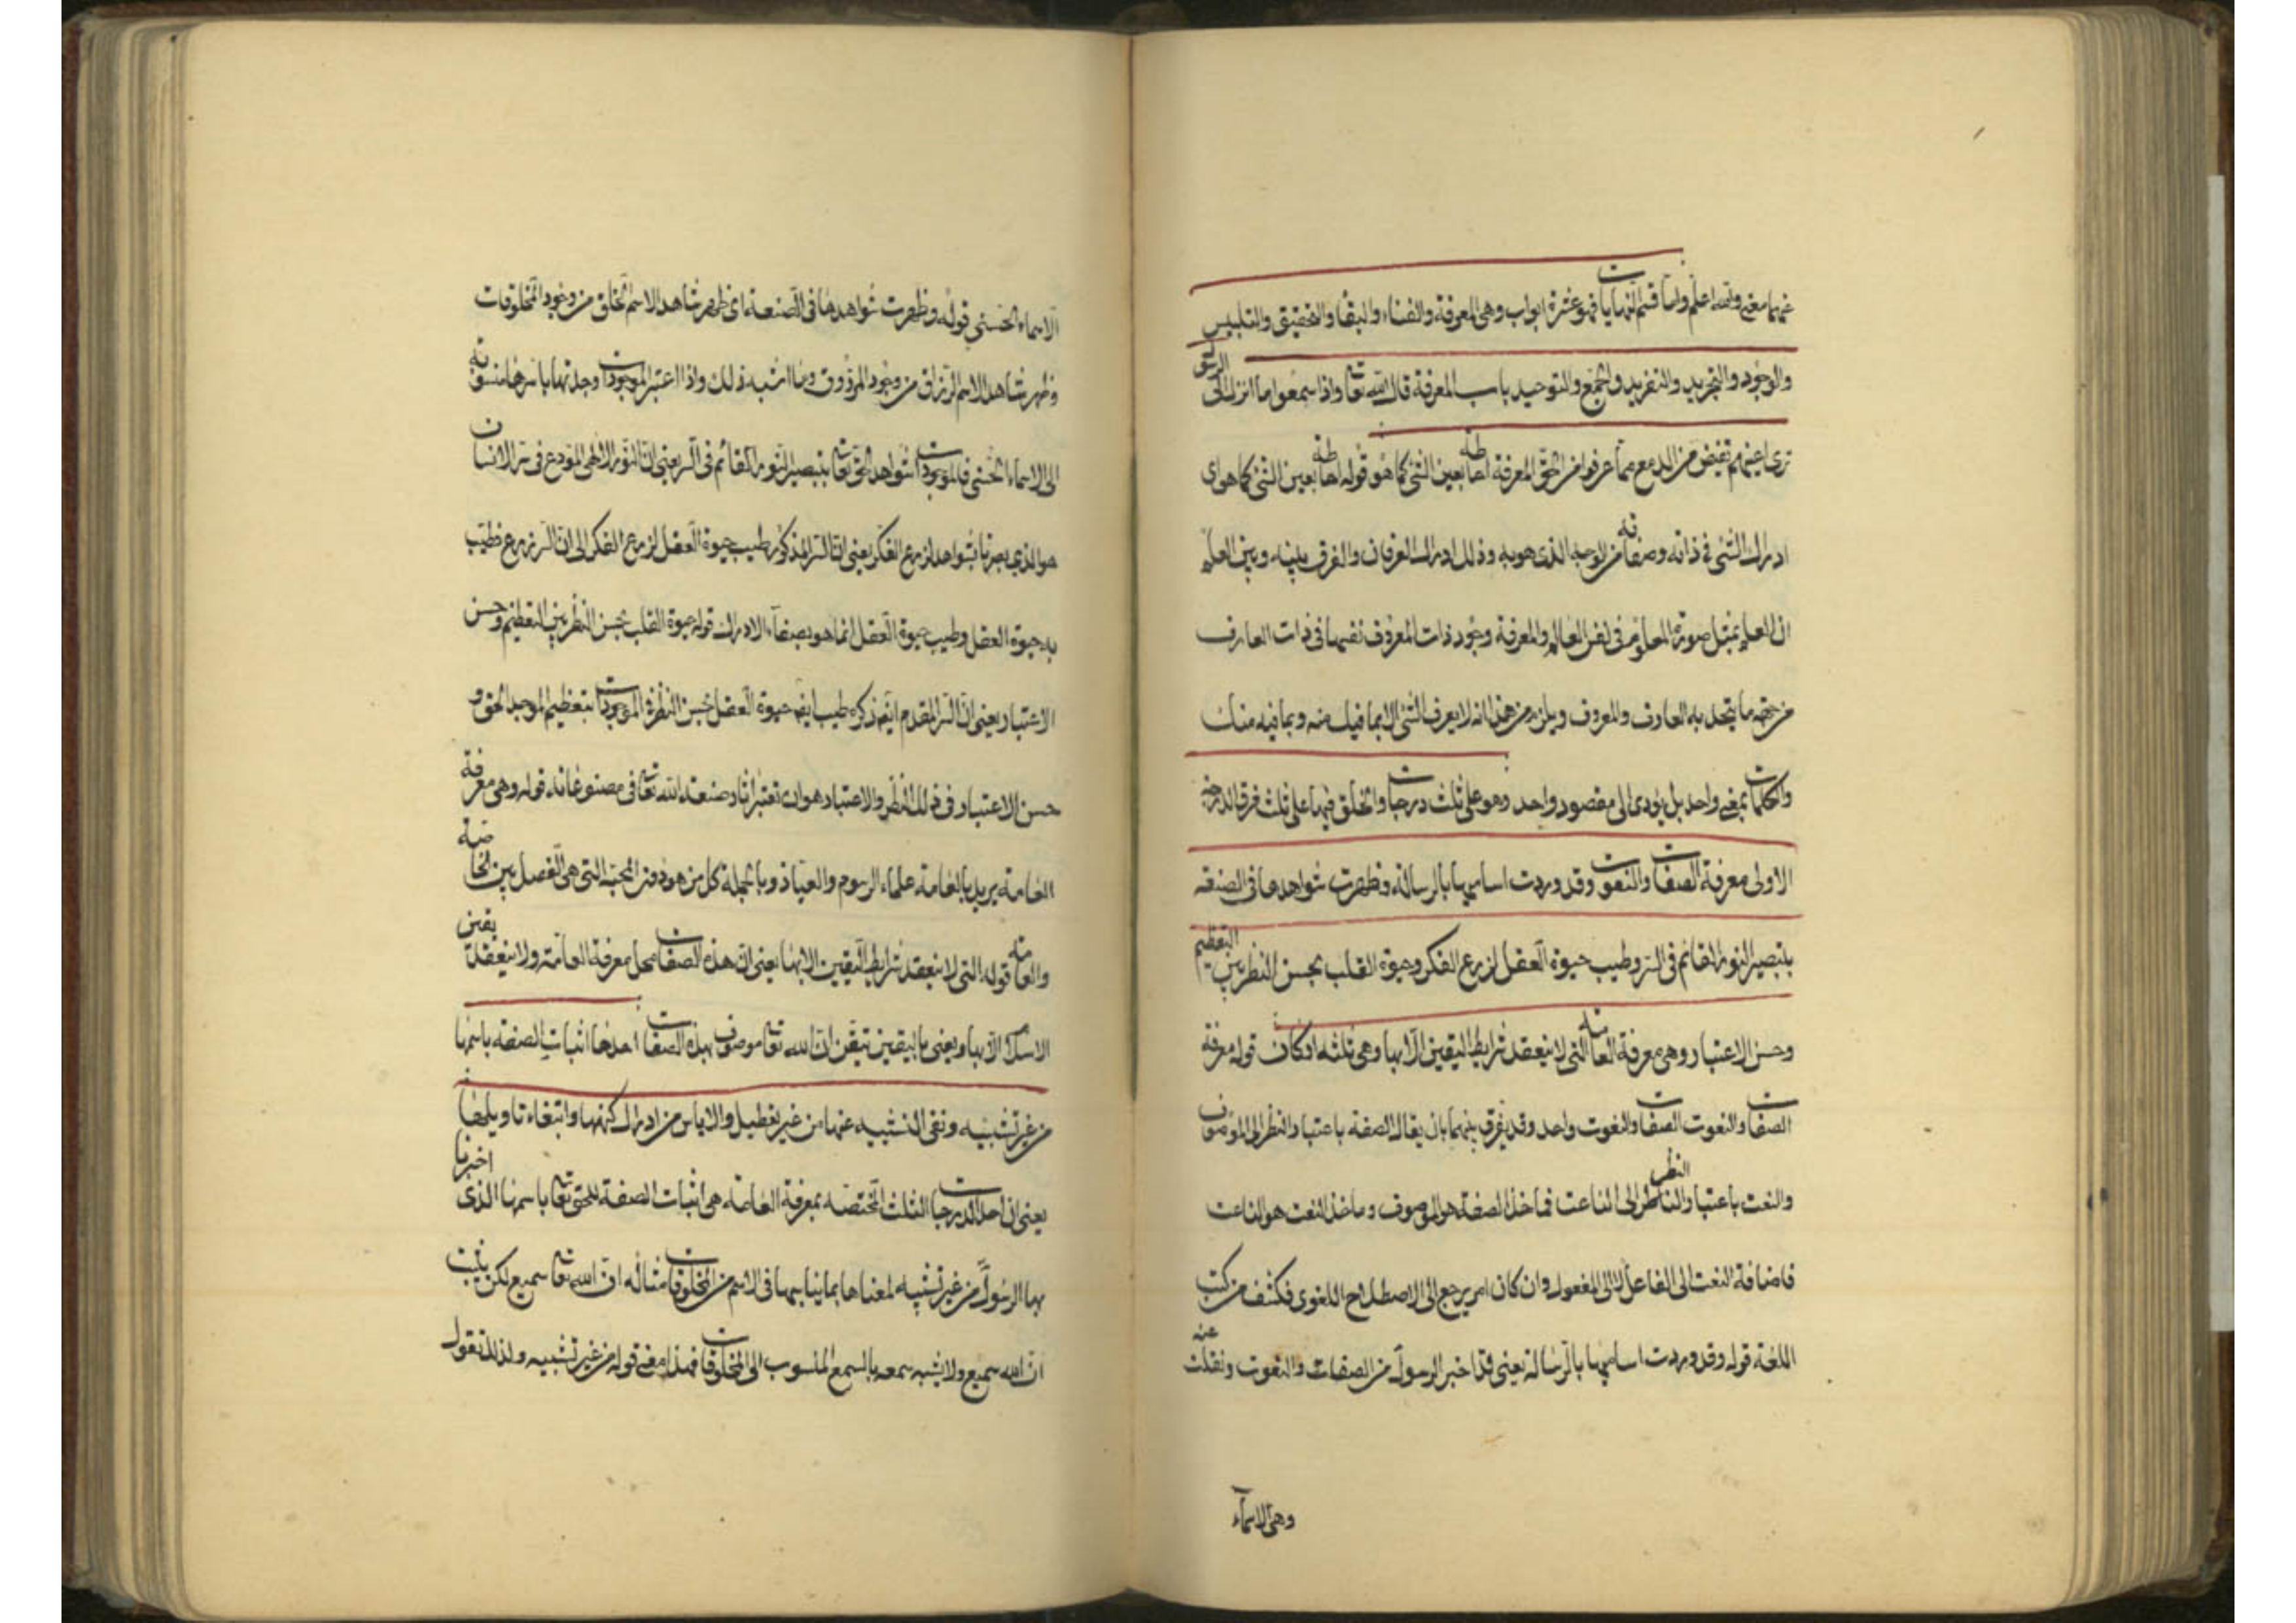 عنهما معنى والله اعلم واما قسم النهايات فهو عشرة ابواب وهى المعرفة والفناء والبقآء والتحقيق والتلبيس
والوجود والتجريد والتفريد والجمع والتوحيد باب المعرفة قال الله تعا واذا سمعوا ما انزل الى الرسول
ترى اعينهم تفيض من الدمع مما عرفوا من الحق المعرفة احاطة بعين الشئ كما هو قوله احاطة بعين الشئ كما هو اى
ادراك الشئ فى ذاته وصفاته من الوجه الذى هو به وذلك ادراك العرفان والفرق بينه وبين العلم
ان العلم بمثل صورة المعلوم فى نفس العالم والمعرفة وجود ذات المعروف نفسها فى ذات العارف
من جهة ما يتحد به العارف والمعروف ويلزم من هذا انه لا يعرف الشئ الا بما فيك منه وبما فيه منك
والكلمات بمعنى واحد بل يؤدى الى مقصود واحد وهو على ثلث درجات والخلق فيها على ثلث فرق الدرجة
الاولى معرفة الصفات والنعوت وقد وردت اساميها بالرسالة وظهرت شواهدها فى الصنعة
بتبصير النور القائم فى السر وطيب حيوة العقل لزرع الفكر وحيوة القلب بحسن النظر بين التعظيم
وحسن الاعتبار وهى معرفة العامة التى لا ينعقد شرايط اليقين الا بها وهى ثلثه اركان قوله معرفة
الصفات والنعوت الصفات والنعوت واحد وقد يفرق بينهما بان يقال الصفة باعتبار النظر الى الموصوف
والنعت باعتبار النظر الى الناعت فماخذ الصفة هو الموصوف وماخذ النعت هو الناعت
فاضافة النعت الى الفاعل لا الى المفعول وان كان امر يرجع الى الاصطلاح اللغوى فكشف من كتب
اللغة قوله وقد وردت اساميها بالرسالة يعنى قد اخبر الرسول من الصفات والنعوت ونقلت عنه
وهى الاسمآء
الاسماء الحسنى قوله وظهرت شواهدها فى الصنعة اى ظهر شاهد الاسم الخالق من وجود المخلوقات
وظهر شاهد الاسم الرزاق من وجود المرزوق وما اشبه ذلك واذا اعتبر الموجودات وجدتها باسرها منسوبة
الى الاسماء الحسنى فالموجودات شواهد الحق تعا بتبصير النور القائم فى السر يعنى ان النور الالهى المودع فى سر الانسان
هو الذى بصرنا بشواهد لزرع الفكر يعنى ان السر المذكور طيب حيوة العقل لزرع الفكر الى ان السر زرع طيب
به حيوة العقل وطيب حيوة العقل انما هو بصفآء الادراك قوله حيوة القلب بحسن النظر بين التعظيم وحسن
الاعتبار يعنى ان السر المقدم ذكره طيب ايضا حيوة العقل بحسن النظر فى الموجودات بتعظيم الموجد الحق و
حسن الاعتبار فى ذلك النظر والاعتبار هو ان تعتبر اثار صنعة الله تعا فى مصنوعاته قوله وهى معرفة
العامة يريد بالعامة علماء الرسوم والعباد وبالجملة كل من هو دون المحبة التى هى الفصل بين الخاصة
والعامة قوله التى لا ينعقد شرايط اليقين الا بها يعنى ان هذه الصفات محل معرفة العامة ولا ينعقد يقين
الاسلام الا بها ويعنى باليقين تيقن ان الله تعا موصوف بهذه الصفات احدها اثبات الصفة باسمها
من غير تشبيه ونفى التشبيه عنها من غير تعطيل والاياس من ادراك كنهها وابتغاء تاويلها
يعنى ان احد الدرجات الثلث المختصة بمعرفة العامة هى اثبات الصفة للحق تعا باسمها الذى اخبرنا
بها الرسول من غير تشبيه لمعناها بما يناسبها فى الاسم من المخلوقات مثاله ان الله تعا سميع لكن يثبت
ان الله سميع ولا يشبه سمعه بالسمع المنسوب الى المخلوقات فهذا معنى قوله من غير تشبيه ولذلك نقول